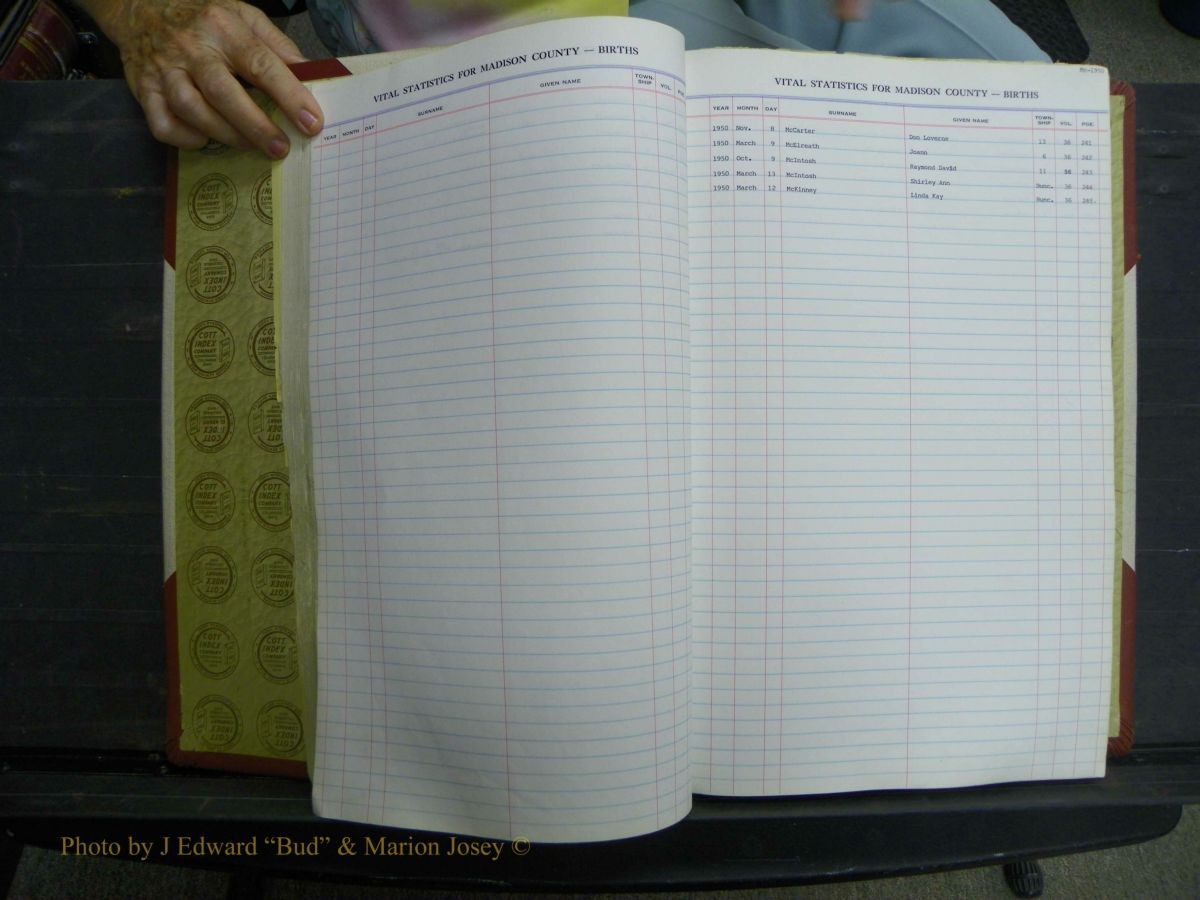 VITAL STATISTICS FOR MADISON COUNTY — BIRTHS
YEAR MONTH DAY SURNAME GIVEN NAME TOWN-SHIP VOL. PGE.
Mc-1950
VITAL STATISTICS FOR MADISON COUNTY — BIRTHS
YEAR MONTH DAY SURNAME GIVEN NAME TOWN-SHIP VOL. PGE.
1950 Nov. 8 McCarter Don Loverne 13 36 241
1950 March 9 McElreath Joann 6 36 242
1950 Oct. 9 McIntosh Raymond David 11 36 243
1950 March 13 McIntosh Shirley Ann Bunc. 36 244
1950 March 12 McKinney Linda Kay Bunc. 36 245
COTT INDEX COMPANY
Photo by J Edward “Bud” & Marion Josey ©